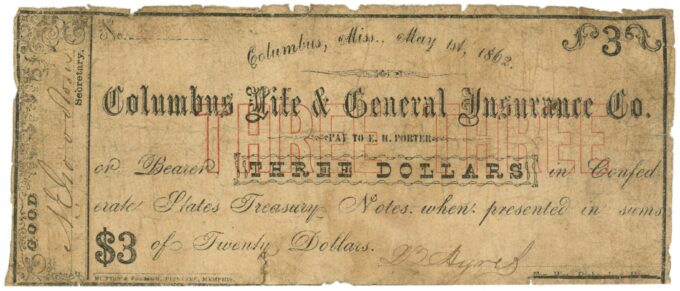 No.
Columbus, Miss., May 1st, 1862.
3
Columbus Life & General Insurance Co.
THREE THREE
PAY TO E. H. PORTER
or Bearer THREE DOLLARS in Confed
erate States Treasury Notes. when presented in sums
$3 of Twenty Dollars.
GOOD
Secretary.
PRINTERS, MEMPHIS.